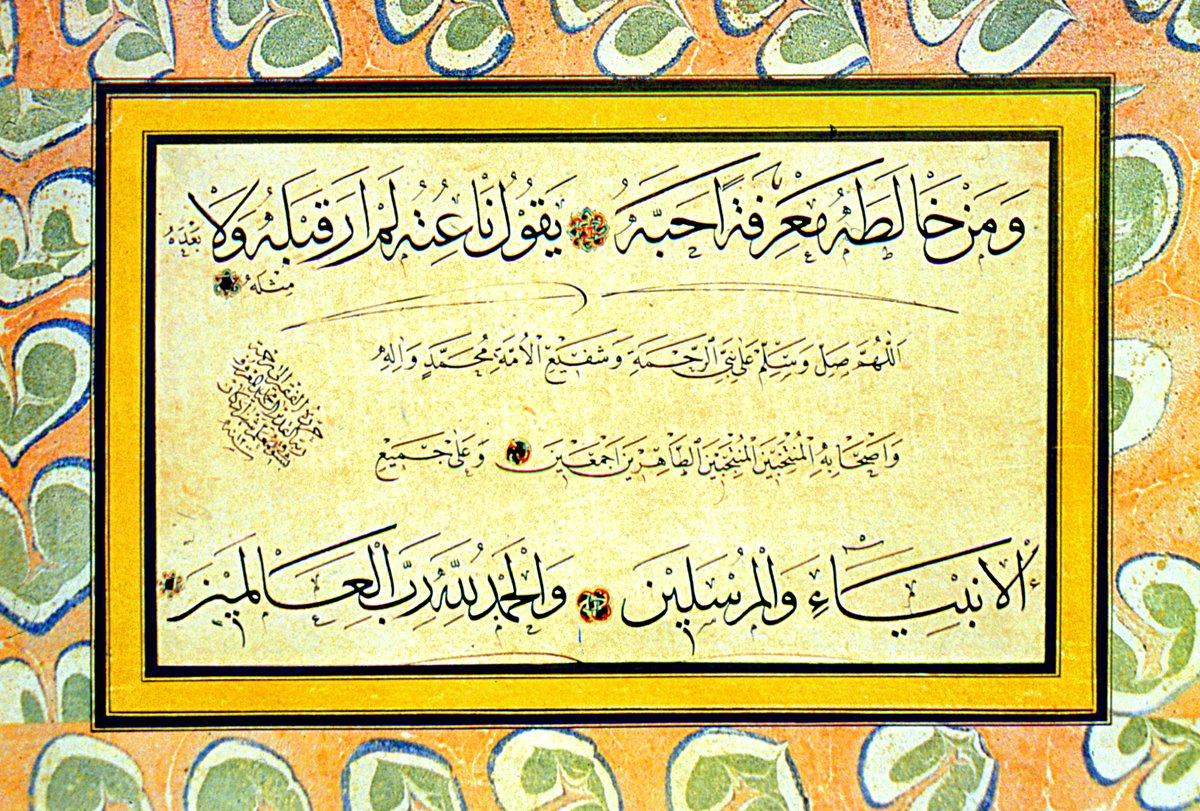 وَمَنْ خَالَطَهُ مَعْرِفَةً اَحَبَّهُ يَقُولُ نَاعِتُهُ لَمْ اَرَ قَبْلَهُ وَلَا بَعْدَهُ
مِثْلَهُ
اَللّٰهُمَّ صَلِّ وَسَلِّمْ عَلٰى نَبِيِّ الرَّحْمَةِ وَشَفِيعِ الْاُمَّةِ مُحَمَّدٍ وَاٰلِهِ
وَاَصْحَابِهِ الْمُنْتَخَبِينَ الْمُنْتَجَبِينَ الطَّاهِرِينَ اَجْمَعِينَ وَعَلٰى جَمِيعِ
الْاَنْبِيَاءِ وَالْمُرْسَلِينَ وَالْحَمْدُ لِلّٰهِ رَبِّ الْعَالَمِينَ